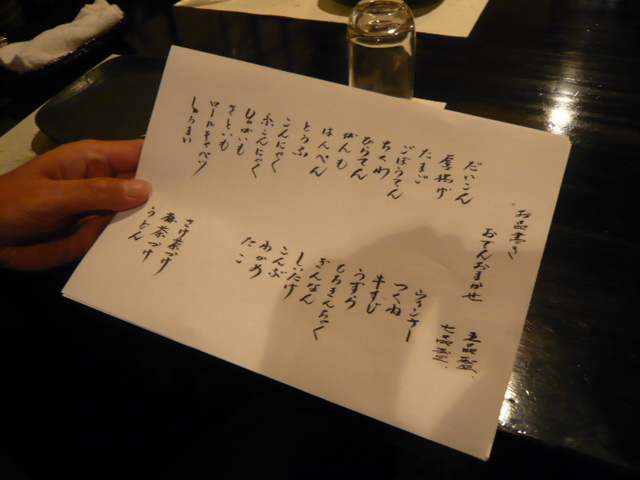 お品書き
おでんおまかせ
五品盛
七品盛
だいこん
厚揚げ
たまご
ごぼうてん
ちくわ
ひらてん
がんも
はんぺん
とうふ
こんにゃく
糸こんにゃく
じゃがいも
さといも
ロールキャベツ
しゅうまい
ウィンナー
つくね
牛すじ
うずら
もちきんちゃく
ぎんなん
しいたけ
こんぶ
わかめ
たこ
さけ茶づけ
梅茶づけ
うどん